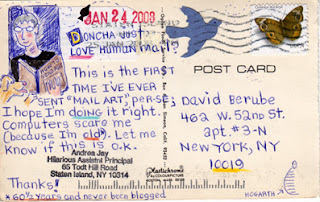 JAN 24 2008
DONCHA JUST
LOVE HUMAN MAIL?
This is the FIRST
TIME I'VE EVER
SENT "MAIL ART," PER SE.
I hope I'm doing it right.
Computers scare me
(because I'm old*). Let me
know if this is O.K.
Andrea Jay
Hilarious Assistnt Principal
65 Todt Hill Road
Staten Island, NY 10314
Thanks!
* 60½ years and never been blogged
Plastichrome
POST CARD
USA
David Berube
462 W. 52nd St.
apt. #3-N
New York, NY
10019
HOGARTH